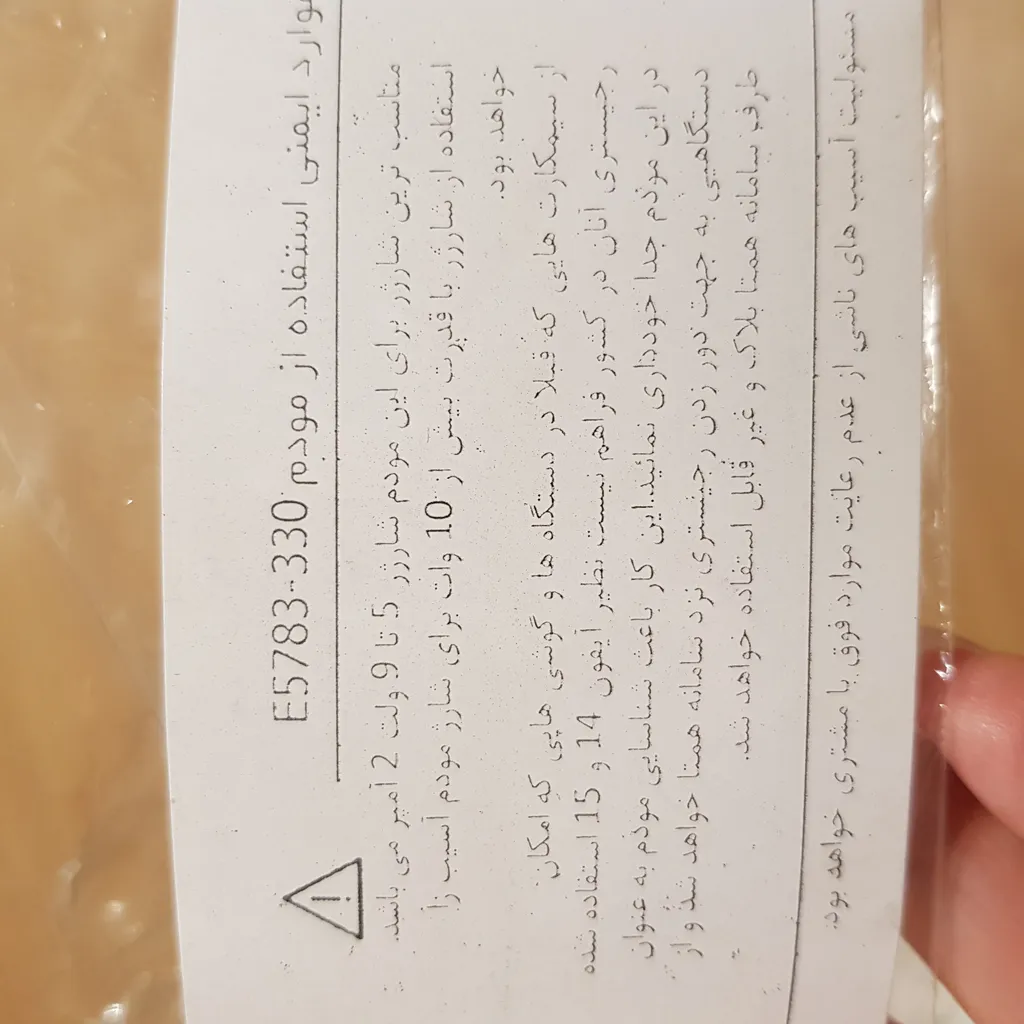 موارد ایمنی استفاده از مودم E5783-330
مناسب ترین شارژر برای این مودم شارژر 5 تا 9 ولت 2 آمپر می باشد.
استفاده از شارژر با قدرت بیش از 10 وات برای شارژ مودم آسیب زا
خواهد بود.
از سیمکارت هایی که قبلا در دستگاه ها و گوشی هایی که امکان
رجیستری آنان در کشور فراهم نیست نظیر آیفون 14 و 15 استفاده شده
در این مودم جدا خودداری نمائید.این کار باعث شناسایی مودم به عنوان
دستگاهیی به جهت دور زدن رجیستری نزد سامانه همتا خواهد شد و از
طرف سامانه همتا بلاک و غیر قابل استفاده خواهد شد.
مسئولیت آسیب های ناشی از عدم رعایت موارد فوق با مشتری خواهد بود.